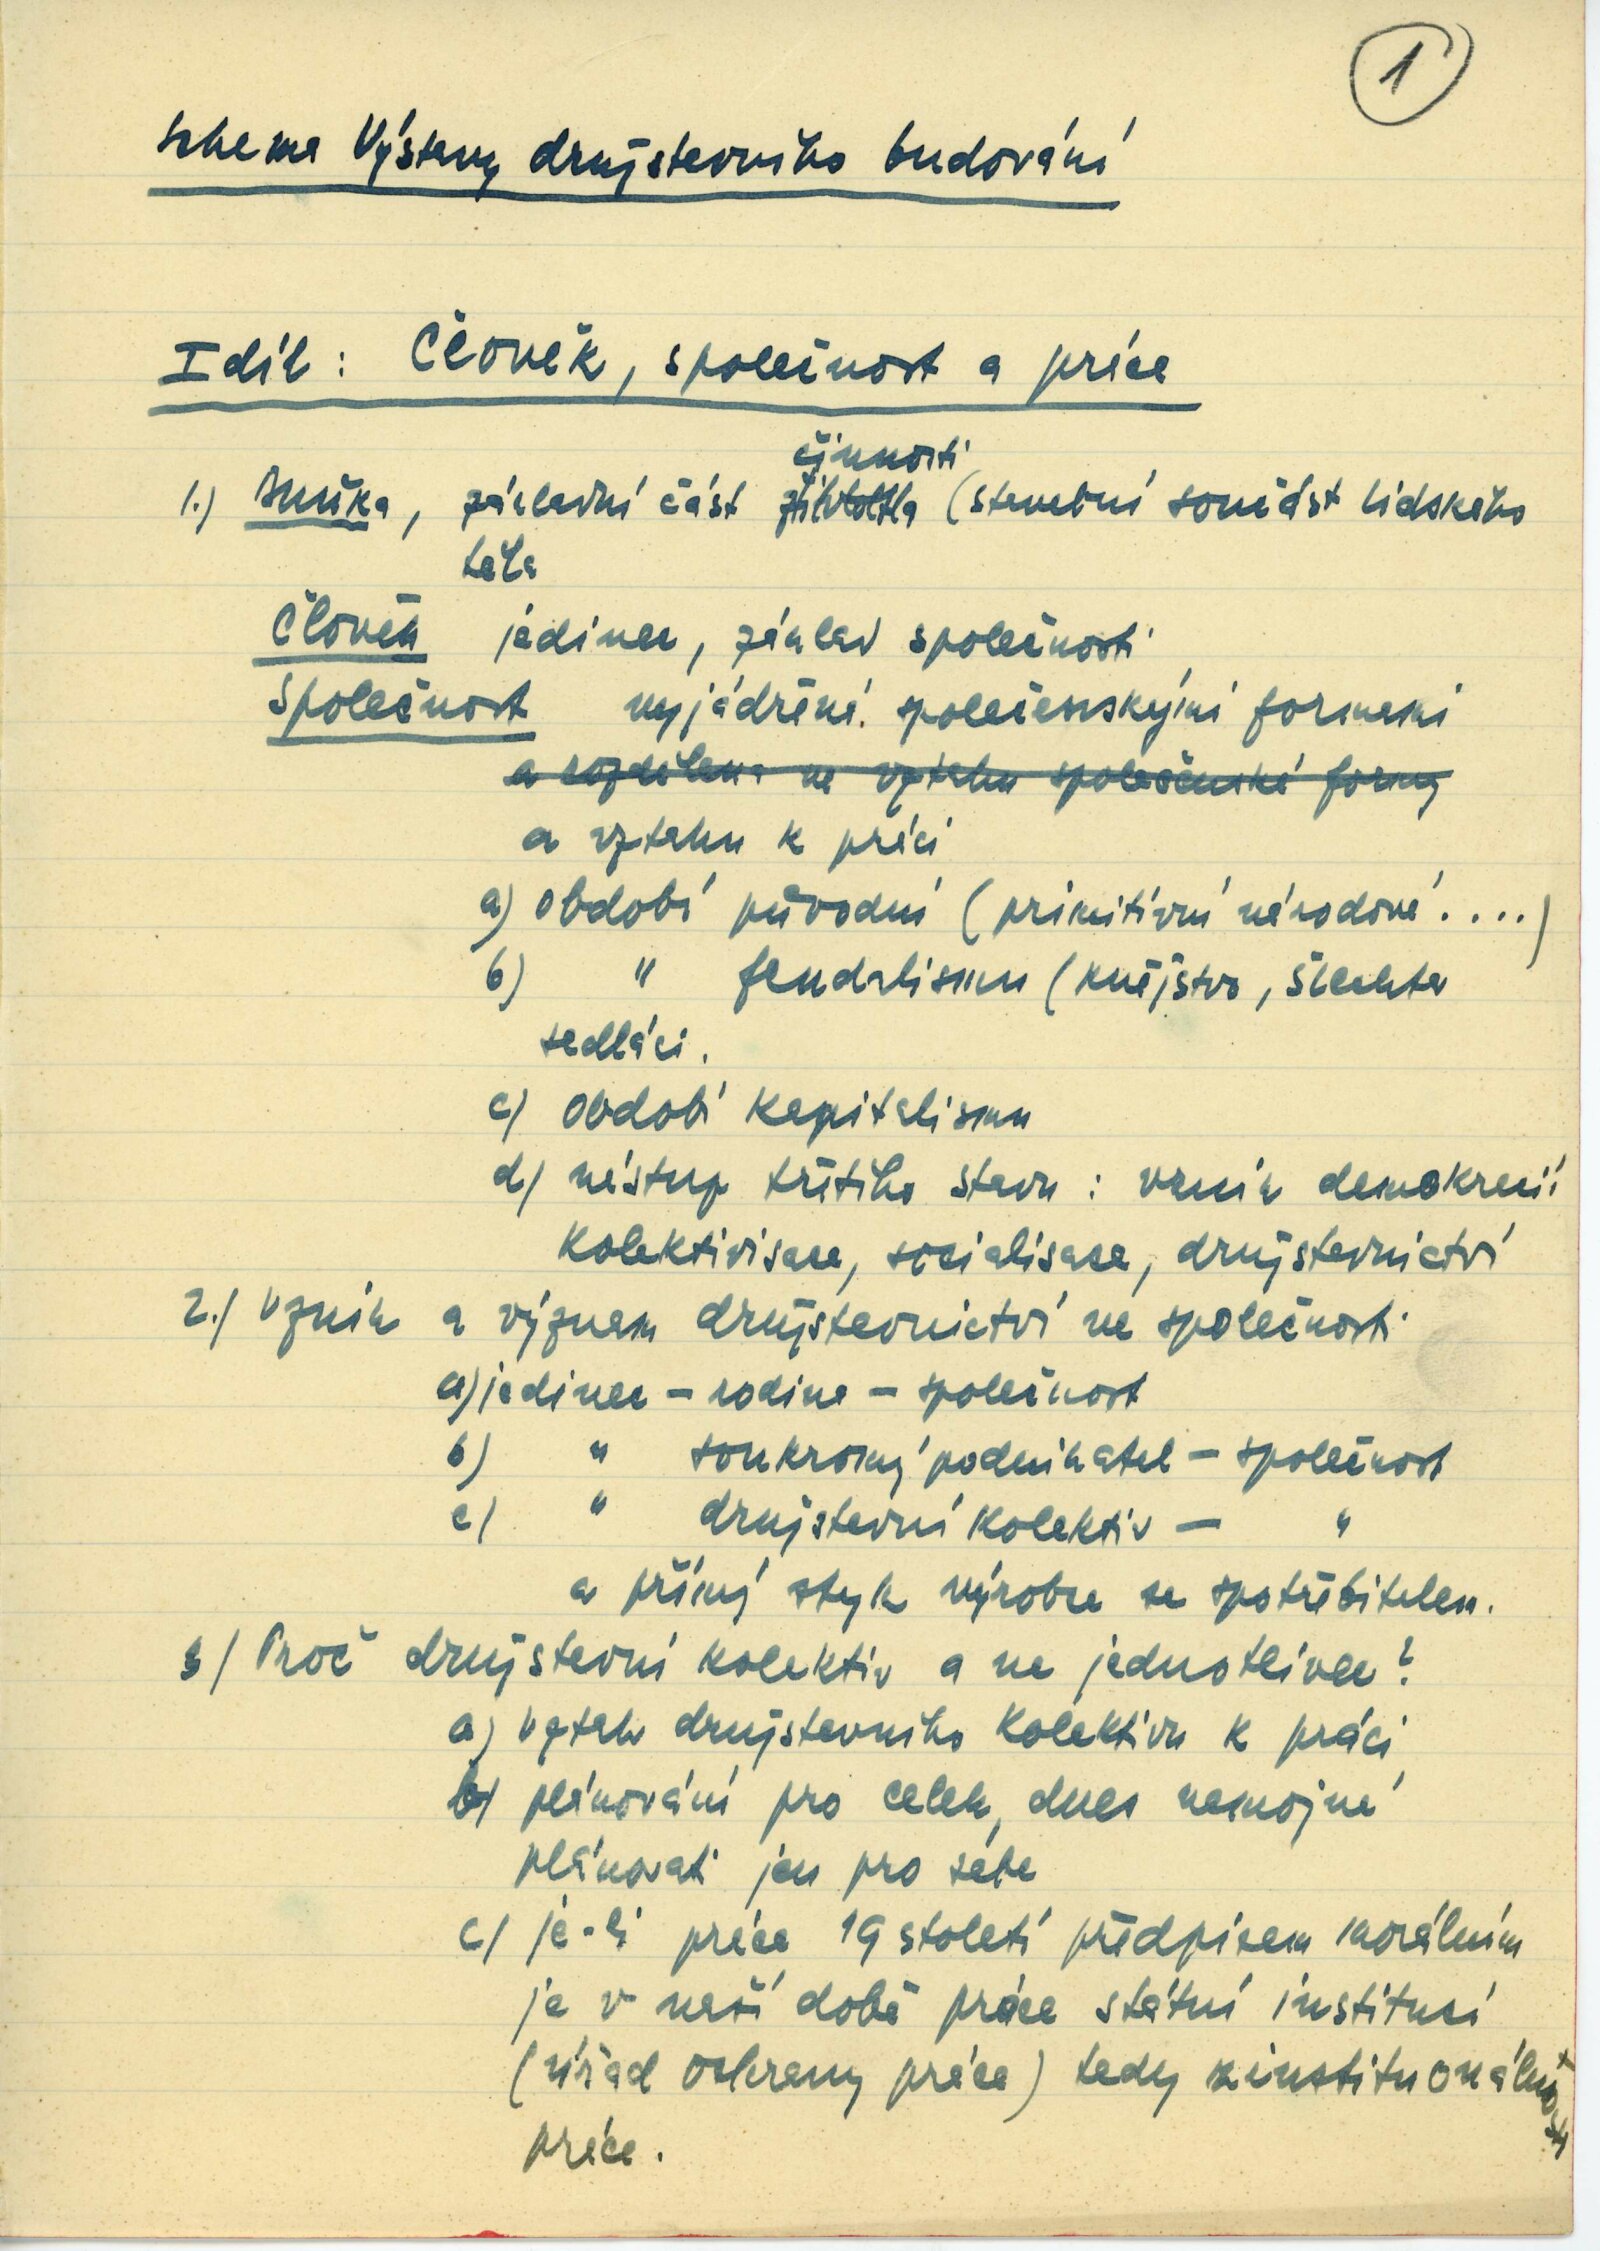 1
Schema Výstavy družstevního budování
I díl: Člověk, společnost a práce
činnosti
1.) Buňka, základní část (stavební součást lidského
těla
Člověk jedinec, základ společnosti
Společnost vyjádřená společenskými formami
a rozdělena na vztahu společenské formy
a vztahu k práci
a) období původní (primitivní národové....)
b) " feudalismu (kněžstvo, šlechta
sedláci.
c) období kapitalismu
d) nástup třetího stavu: vznik demokracií
Kolektivisace, socialisace, družstevnictví
2./ Vznik a význam družstevnictví ve společnosti
a) jedinec - rodina - společnost
b) " soukromý podnikatel - společnost
c) " družstevní kolektiv - "
a přímý styk výrobce se spotřebitelem.
3/ Proč družstevní kolektiv a ne jednotlivec?
a) Vztah družstevního kolektivu k práci
b) plánování pro celek, dnes nemožné
plánovati jen pro sebe
c) je-li práce 19 století předpisem morálním
je v naší době práce státní institucí
(úřad ochrany práce) tedy
práce.